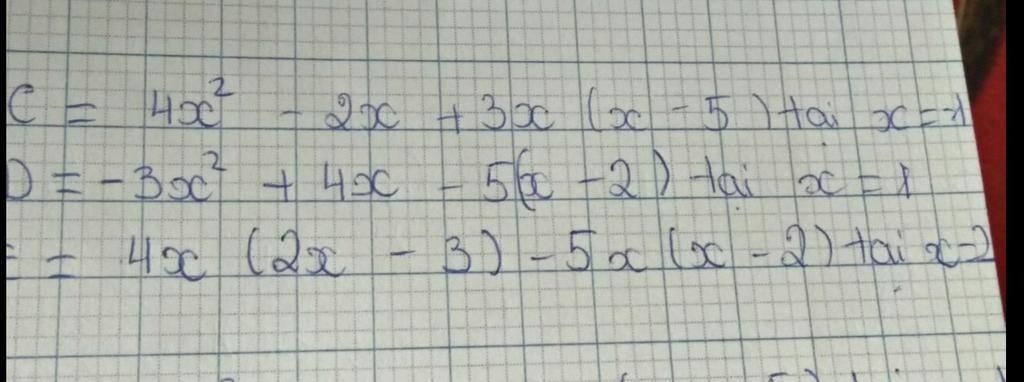 C = 4x² - 2x + 3x (x - 5) tại x = -1
D = -3x² + 4x - 5(x - 2) tại x = 1
= 4x (2x - 3) - 5x (x - 2) tại x = 2